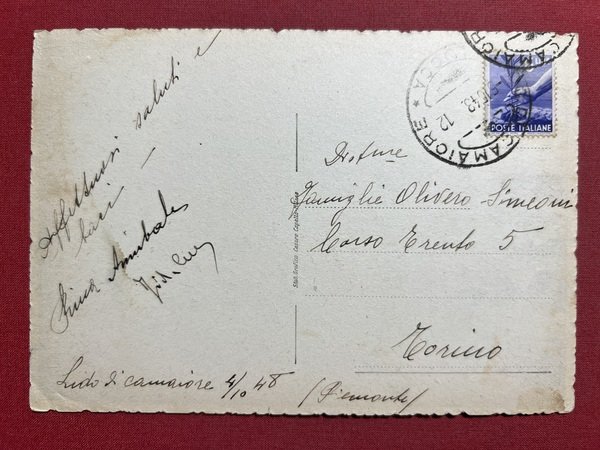 Affettuosi saluti e
baci —
Annibale
CAMAIORE
CAMAIORE
POSTE ITALIANE
Famiglie Olivero Simeoni
Corso Trento 5
Torino
(Piemonte)
Lido di camaiore 4/10 48